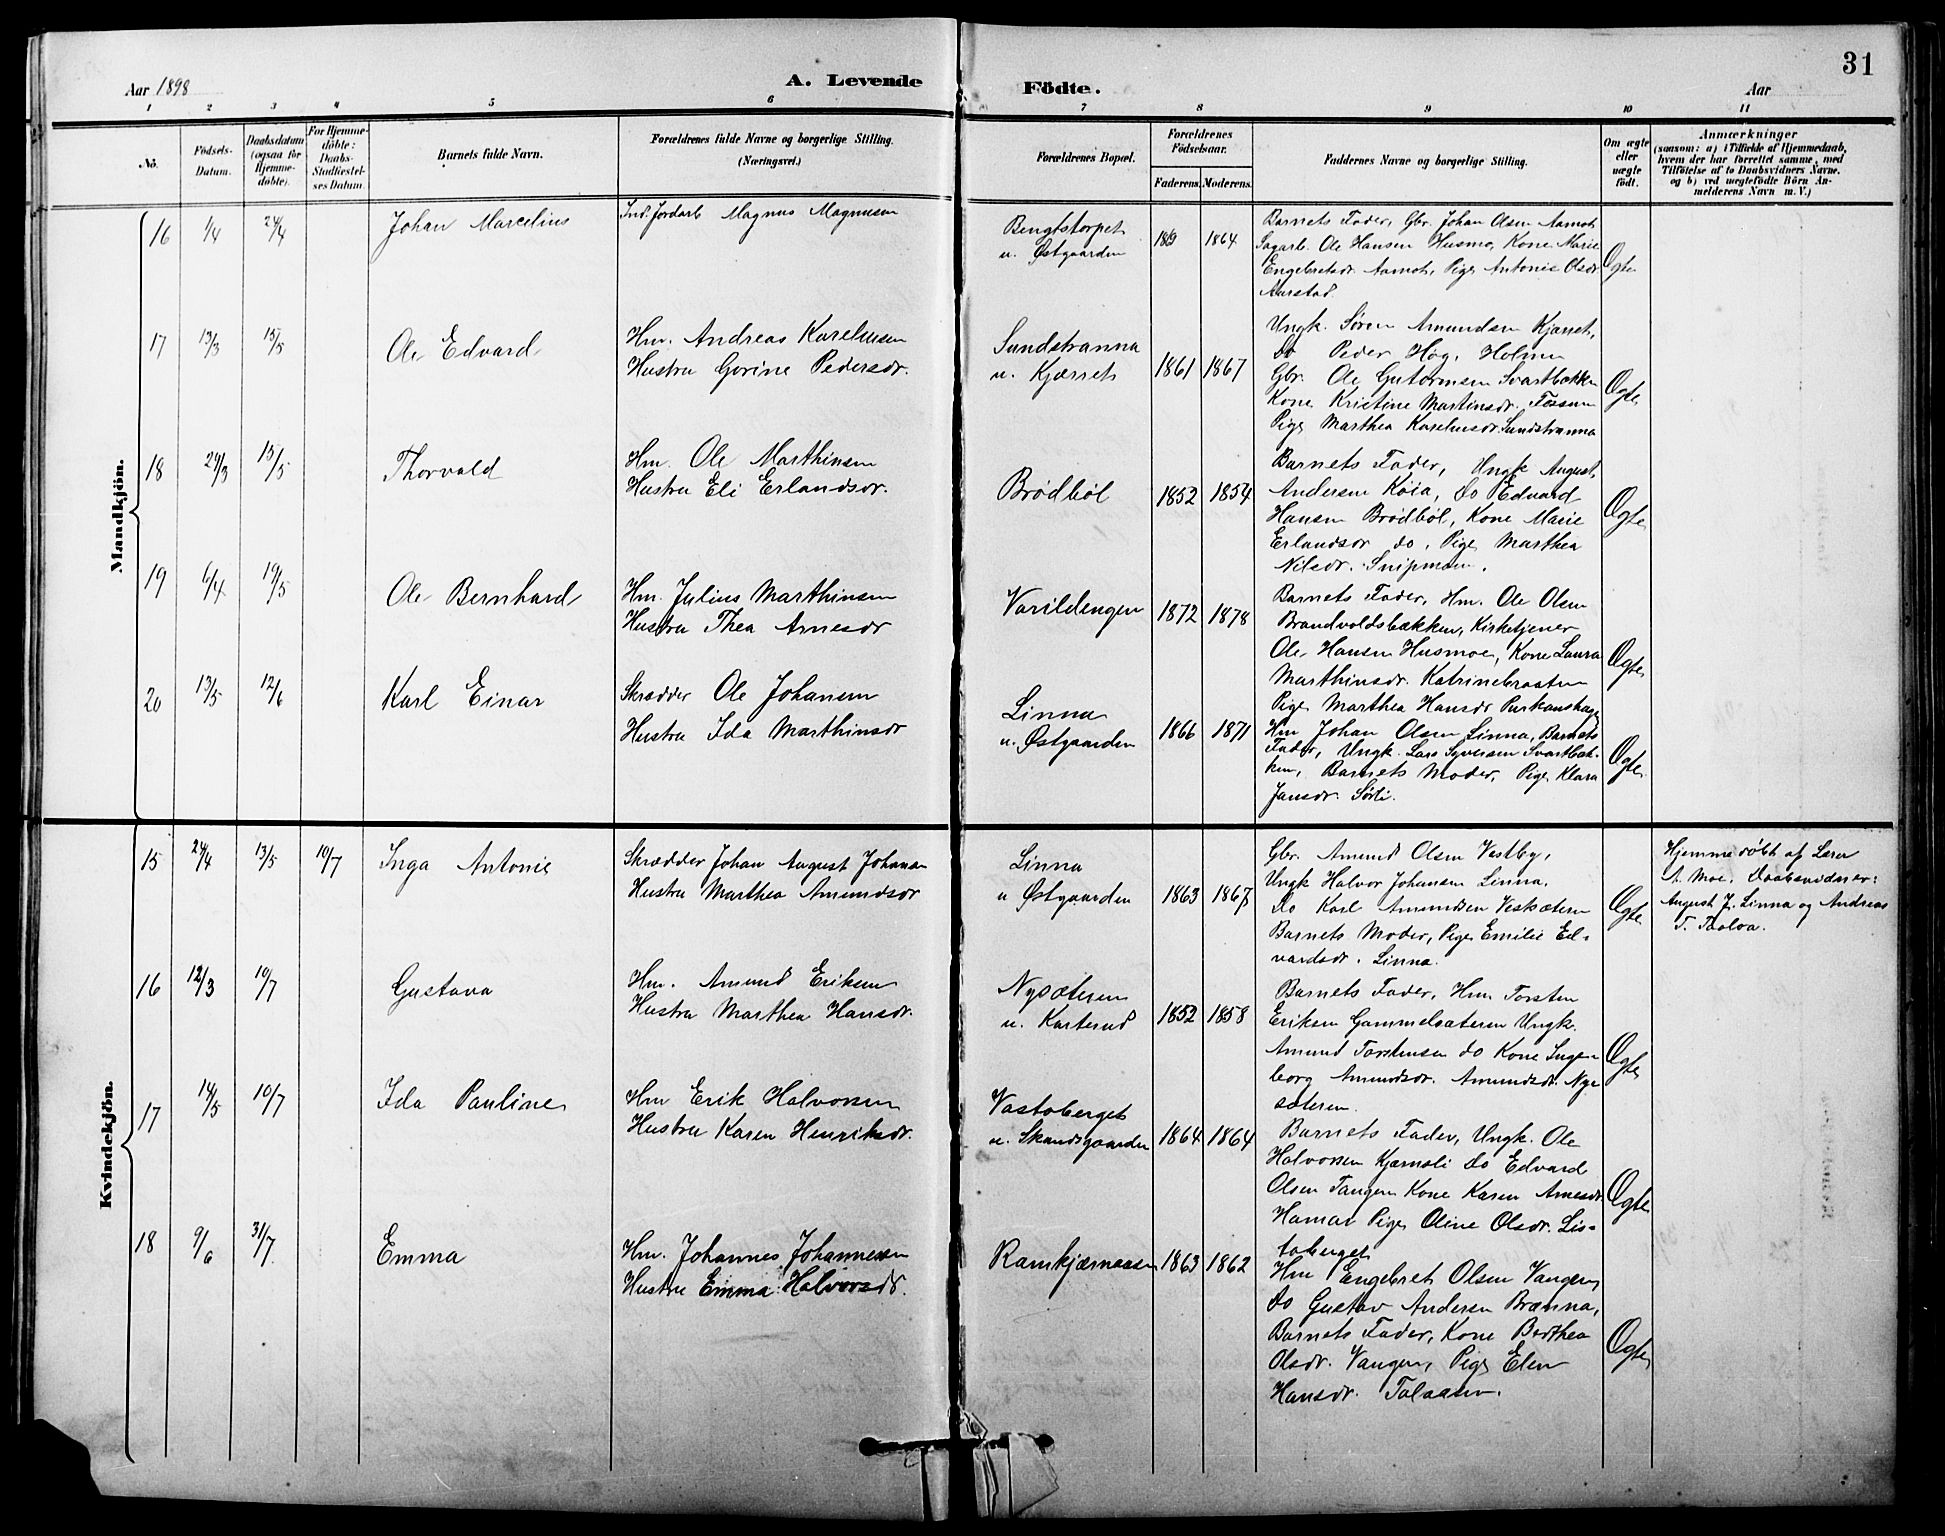 31
Aar 1898
A. Levende Födte.
Aar
1 2 3 4 5 6 7 8 9 10 11
No.
Födsels-Datum.
Daabsdatum (ogsaa for Hjemme-döbte).
For Hjemme-döbte: Daabs-Stadfæstel-ses Datum.
Barnets fulde Navn.
Forældrenes fulde Navne og borgerlige Stilling.
(Næringsvei.)
Forældrenes Bopæl.
Forældrenes Födselsaar.
Faderens. Moderens.
Faddernes Navne og borgerlige Stilling.
Om ægte eller uægte födt.
Anmærkninger
(saasom: a) i Tilfælde af Hjemmedaab,
hvem der har forrettet samme, med
Tilföielse af to Daabsvidners Navne.
og b) ved uægtefödte Börn An-
melderens Navn m. V.)
Mandkjön.
16 1/4 24/4 Johan Marcelius
Ind. Jordarb Magnus Magnusen
Bengtstorpet
u. Østgaarden
1864
Barnets Fader, Gbr. Johan Olsen Aamot
Sagarb. Ole Hansen Husmo, Kone Marie
Engebretsdr. Aamot, Pige Antonie Olsdr
Aarstad.
Ægte
17 13/3 15/5 Ole Edvard
Hm. Andreas Karelusen
Hustru Gorine Pedersdr.
Sundstranna
u. Kjærret
1861 1867
Ungk. Søren Amundsen Kjærret,
Do Peder Høg. Holmen
Gbr. Ole Gutormsen Svartbækken
Kone Kristine Martinsdr. Fossum
Pige Marthea Karelusdr. Sundstranna
Ægte
18 29/3 15/5 Thorvald
Hm. Ole Marthinsen
Hustru Eli Erlandsdr.
Brødbøl
1852 1854
Barnets Fader, Ungk August
Andersen Køia, Do Edvard
Hansen Brødbøl, Kone Marie
Erlandsdr do, Pige Marthea
Nilsdr. Snipmoen.
Ægte
19 6/4 19/5 Ole Bernhard
Hm. Julius Marthinsen
Hustru Thea Arnesdr
Varildengen
1872 1878
Barnets Fader, Hm. Ole Olsen
Brandvoldsbækken, Kirketjener
Ole Hansen Husmoe, Kone Laura
Marthinsdr. Katrinebraaten
Pige Marthea Hansdr
Ægte
20 13/5 12/6 Karl Einar
Skrædder Ole Johansen
Hustru Ida Marthinsdr
Linna
u. Østgaarden
1866 1871
Hm Johan Olsen Linna, Barnets
Fader, Ungk. Lars Syversen Svartbæk-
ken, Barnets Moder, Pige Klara
Jansdr. Sørli.
Ægte
Kvindekjön.
15 24/4 13/5 10/7 Inga Antonie
Skrædder Johan August Johansen
Hustru Marthea Amundsdr
Linna
u Østgaarden
1863 1867
Gbr. Amund Olsen Vestby,
Ungk Halvor Johansen Linna.
Do Karl Amundsen Vestsætern
Barnets Moder, Pige Emilie Ed-
vardsdr. Linna.
Ægte
Hjemmedøbt af Lærer
A. Moe. Daabsvidner:
August J. Linna og Andreas
T.
16 12/3 10/7 Gustava
Hm. Amund Eriksen
Hustru Marthea Hansdr.
Nysæteren
u. Karterud
1852 1858
Barnets Fader, Hm Torsten
Eriksen Gammelsæteren Ungk.
Amund Torstensen do Kone Inge-
borg Amundsdr. Amundsdr. Ny-
sæteren.
Ægte
17 14/5 10/7 Ida Pauline
Hm Erik Halvorsen
Hustru Karen Henriksdr.
Vastoberget
u. Skandsgaarden
1864 1864
Barnets Fader, Ungk. Ole
Halvorsen Kjærnsli Do Edvard
Olsen Tangen Kone Karen Arnesdr
Hamar Pige Oline Olsdr. Lis-
toberget
Ægte
18 9/6 31/7 Emma
Hm. Johannes Johannesen
Hustru Emma Halvorsdr.
Ramkjærnaasen
1863 1862
Hm Engebret Olsen Vangen,
Do Gustav Andersen Brænna,
Barnets Fader, Kone Berthea
Olsdr. Vangen, Pige Elen
Hansdr. Talaasen.
Ægte